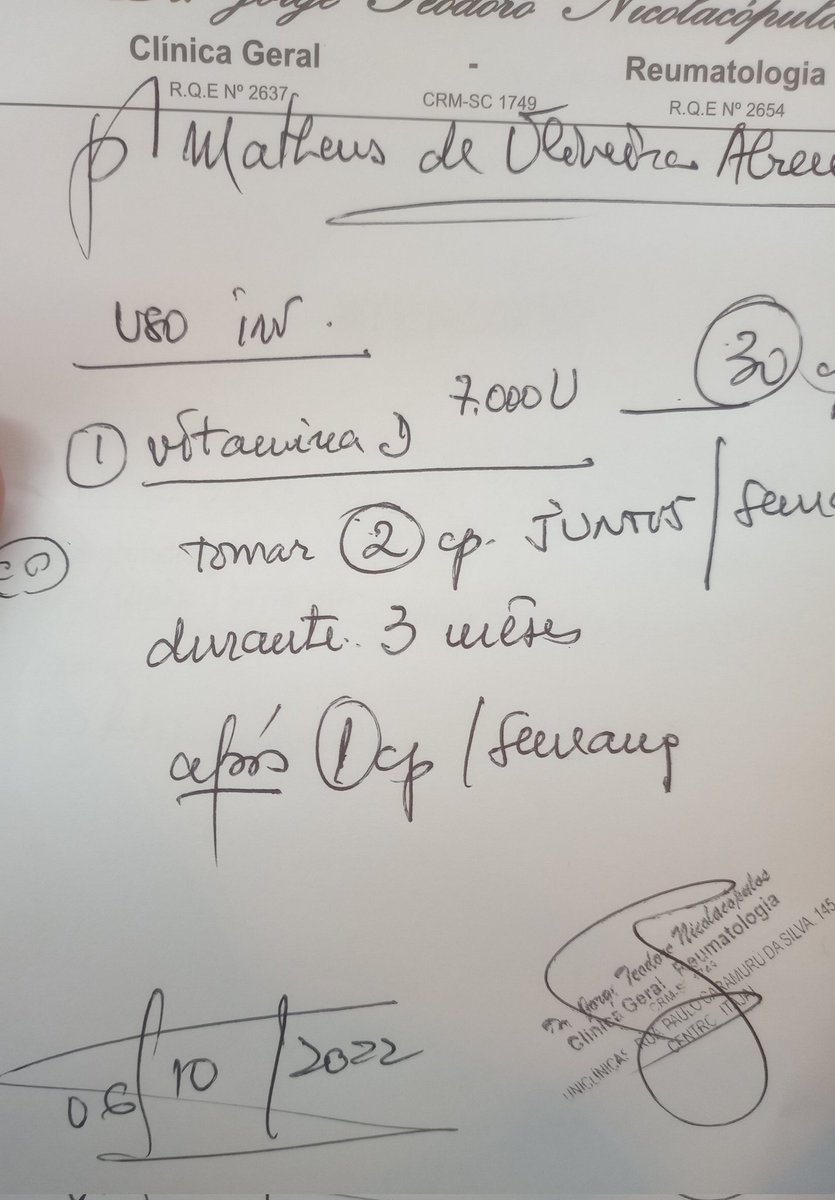 Dr. Jorge Teodoro Nicolacópulos
Clínica Geral - Reumatologia
R.Q.E Nº 2637 CRM-SC 1749 R.Q.E Nº 2654
p/ Matheus de Oliveira Abreu
uso int.
① vitamina D 7.000U 30
tomar ② cp. JUNTOS / sema
durante 3 mêses
após ① cp / semana
06/10/2022
Dr. Jorge Teodoro Nicolacópulos
Clínica Geral Reumatologia
CRM-S
UNICLÍNICAS RUA PAULO CARAMURU DA SILVA, 145
CENTRO